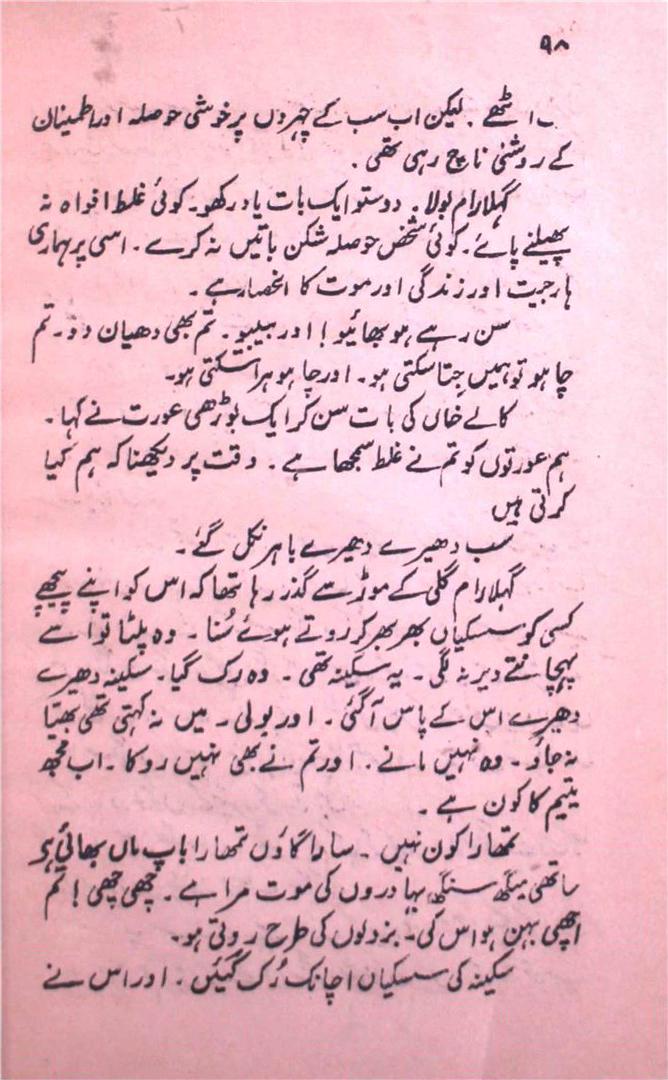 ۹۸
اٹھے . لیکن اب سب کے چہروں پر خوشی حوصلہ اور اطمینان
کے روشنی ناچ رہی تھی .
گہلا رام بولا . دوستو ایک بات یاد رکھو۔ کوئی غلط افواہ نہ
پھیلنے پائے۔ کوئی شخص حوصلہ شکن باتیں نہ کرے . اسی پر ہماری
ہار جیت اور زندگی اور موت کا انحصار ہے ۔
سن رہے ہو بھائیو ! اور بیبیو ۔ تم بھی دھیان دو ۔ تم
چاہو تو ہمیں جِتا سکتی ہو۔ اور چاہو ہرا سکتی ہو۔
کالے خاں کی بات سن کر ایک بوڑھی عورت نے کہا ۔
ہم عورتوں کو تم نے غلط سمجھا ہے . وقت پر دیکھنا کہ ہم کیا
کرتی ہیں
سب دھیرے دھیرے باہر نکل گئے ۔
گہلا رام گلی کے موڑ سے گذر رہا تھا کہ اس کو اپنے پیچھے
کسی کو سسکیاں بھر بھر کر روتے ہوئے سُنا ۔ وہ پلٹا تو اسے
پہچانتے دیر نہ لگی ۔ یہ سکینہ تھی ۔ وہ رک گیا ۔ سکینہ دھیرے
دھیرے اس کے پاس آگئی . اور بولی ۔ میں نہ کہتی تھی بھیّا
نہ جاؤ ۔ وہ نہیں مانے . اور تم نے بھی نہیں روکا ۔ اب مجھ
یتیم کا کون ہے ۔
تمھارا کون نہیں ۔ سارا گاؤں تمھارا باپ ماں بھائی ہے
ساتھی میگھ سنگھ بہادروں کی موت مرا ہے ۔ چھی چھی ! تم
اچھی بہن ہو اس کی۔ بزدلوں کی طرح روتی ہو۔
سکینہ کی سسکیاں اچانک رُک گئیں . اور اس نے